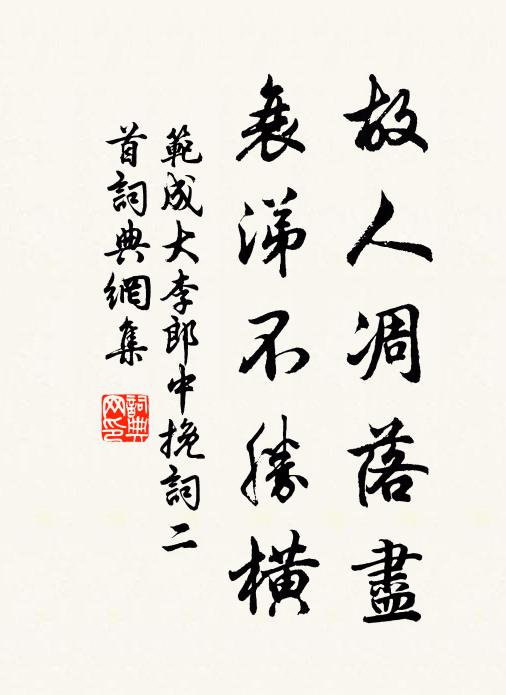 故人凋落盡
衰涕不勝橫
範成大李郎中挽詞二
首詞典網集
詞典
网印